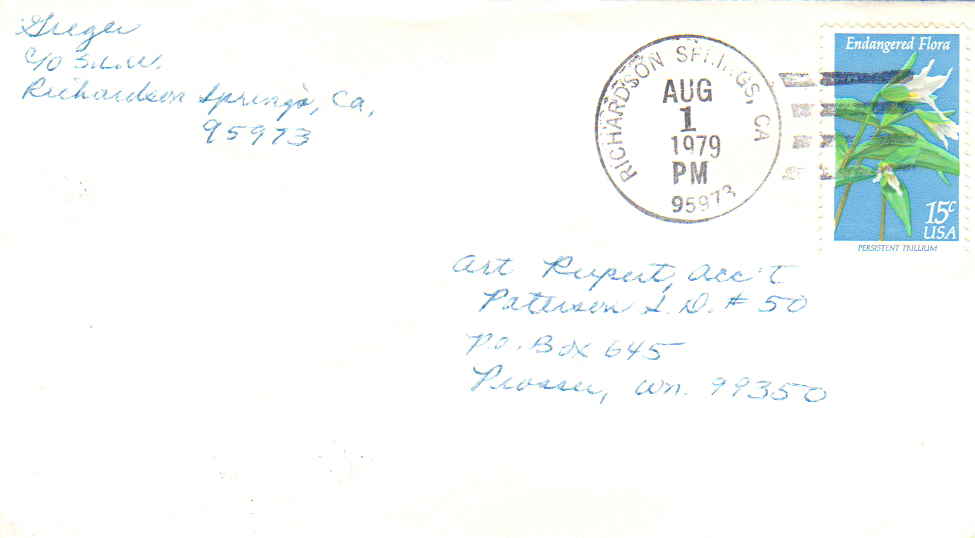 Greger
C/O S.L.W.
Richardson Springs, Ca,
95973
RICHARDSON SPRINGS, CA
AUG
1
1979
PM
95973
Endangered Flora
15c
USA
PERSISTENT TRILLIUM
Art Rupert, Acc't
Paterson S.D. # 50
P.O. Box 645
Prosser, Wn. 99350